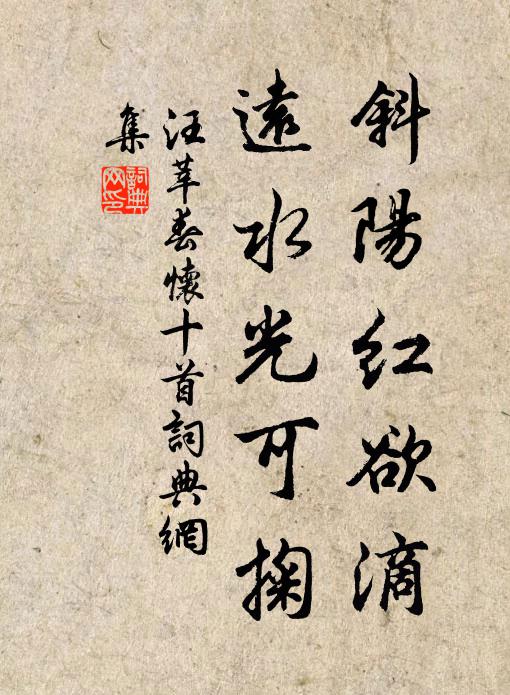 斜陽紅欲滴
遠水光可掬
汪莘春懷十首詞典網
集
詞典
网印